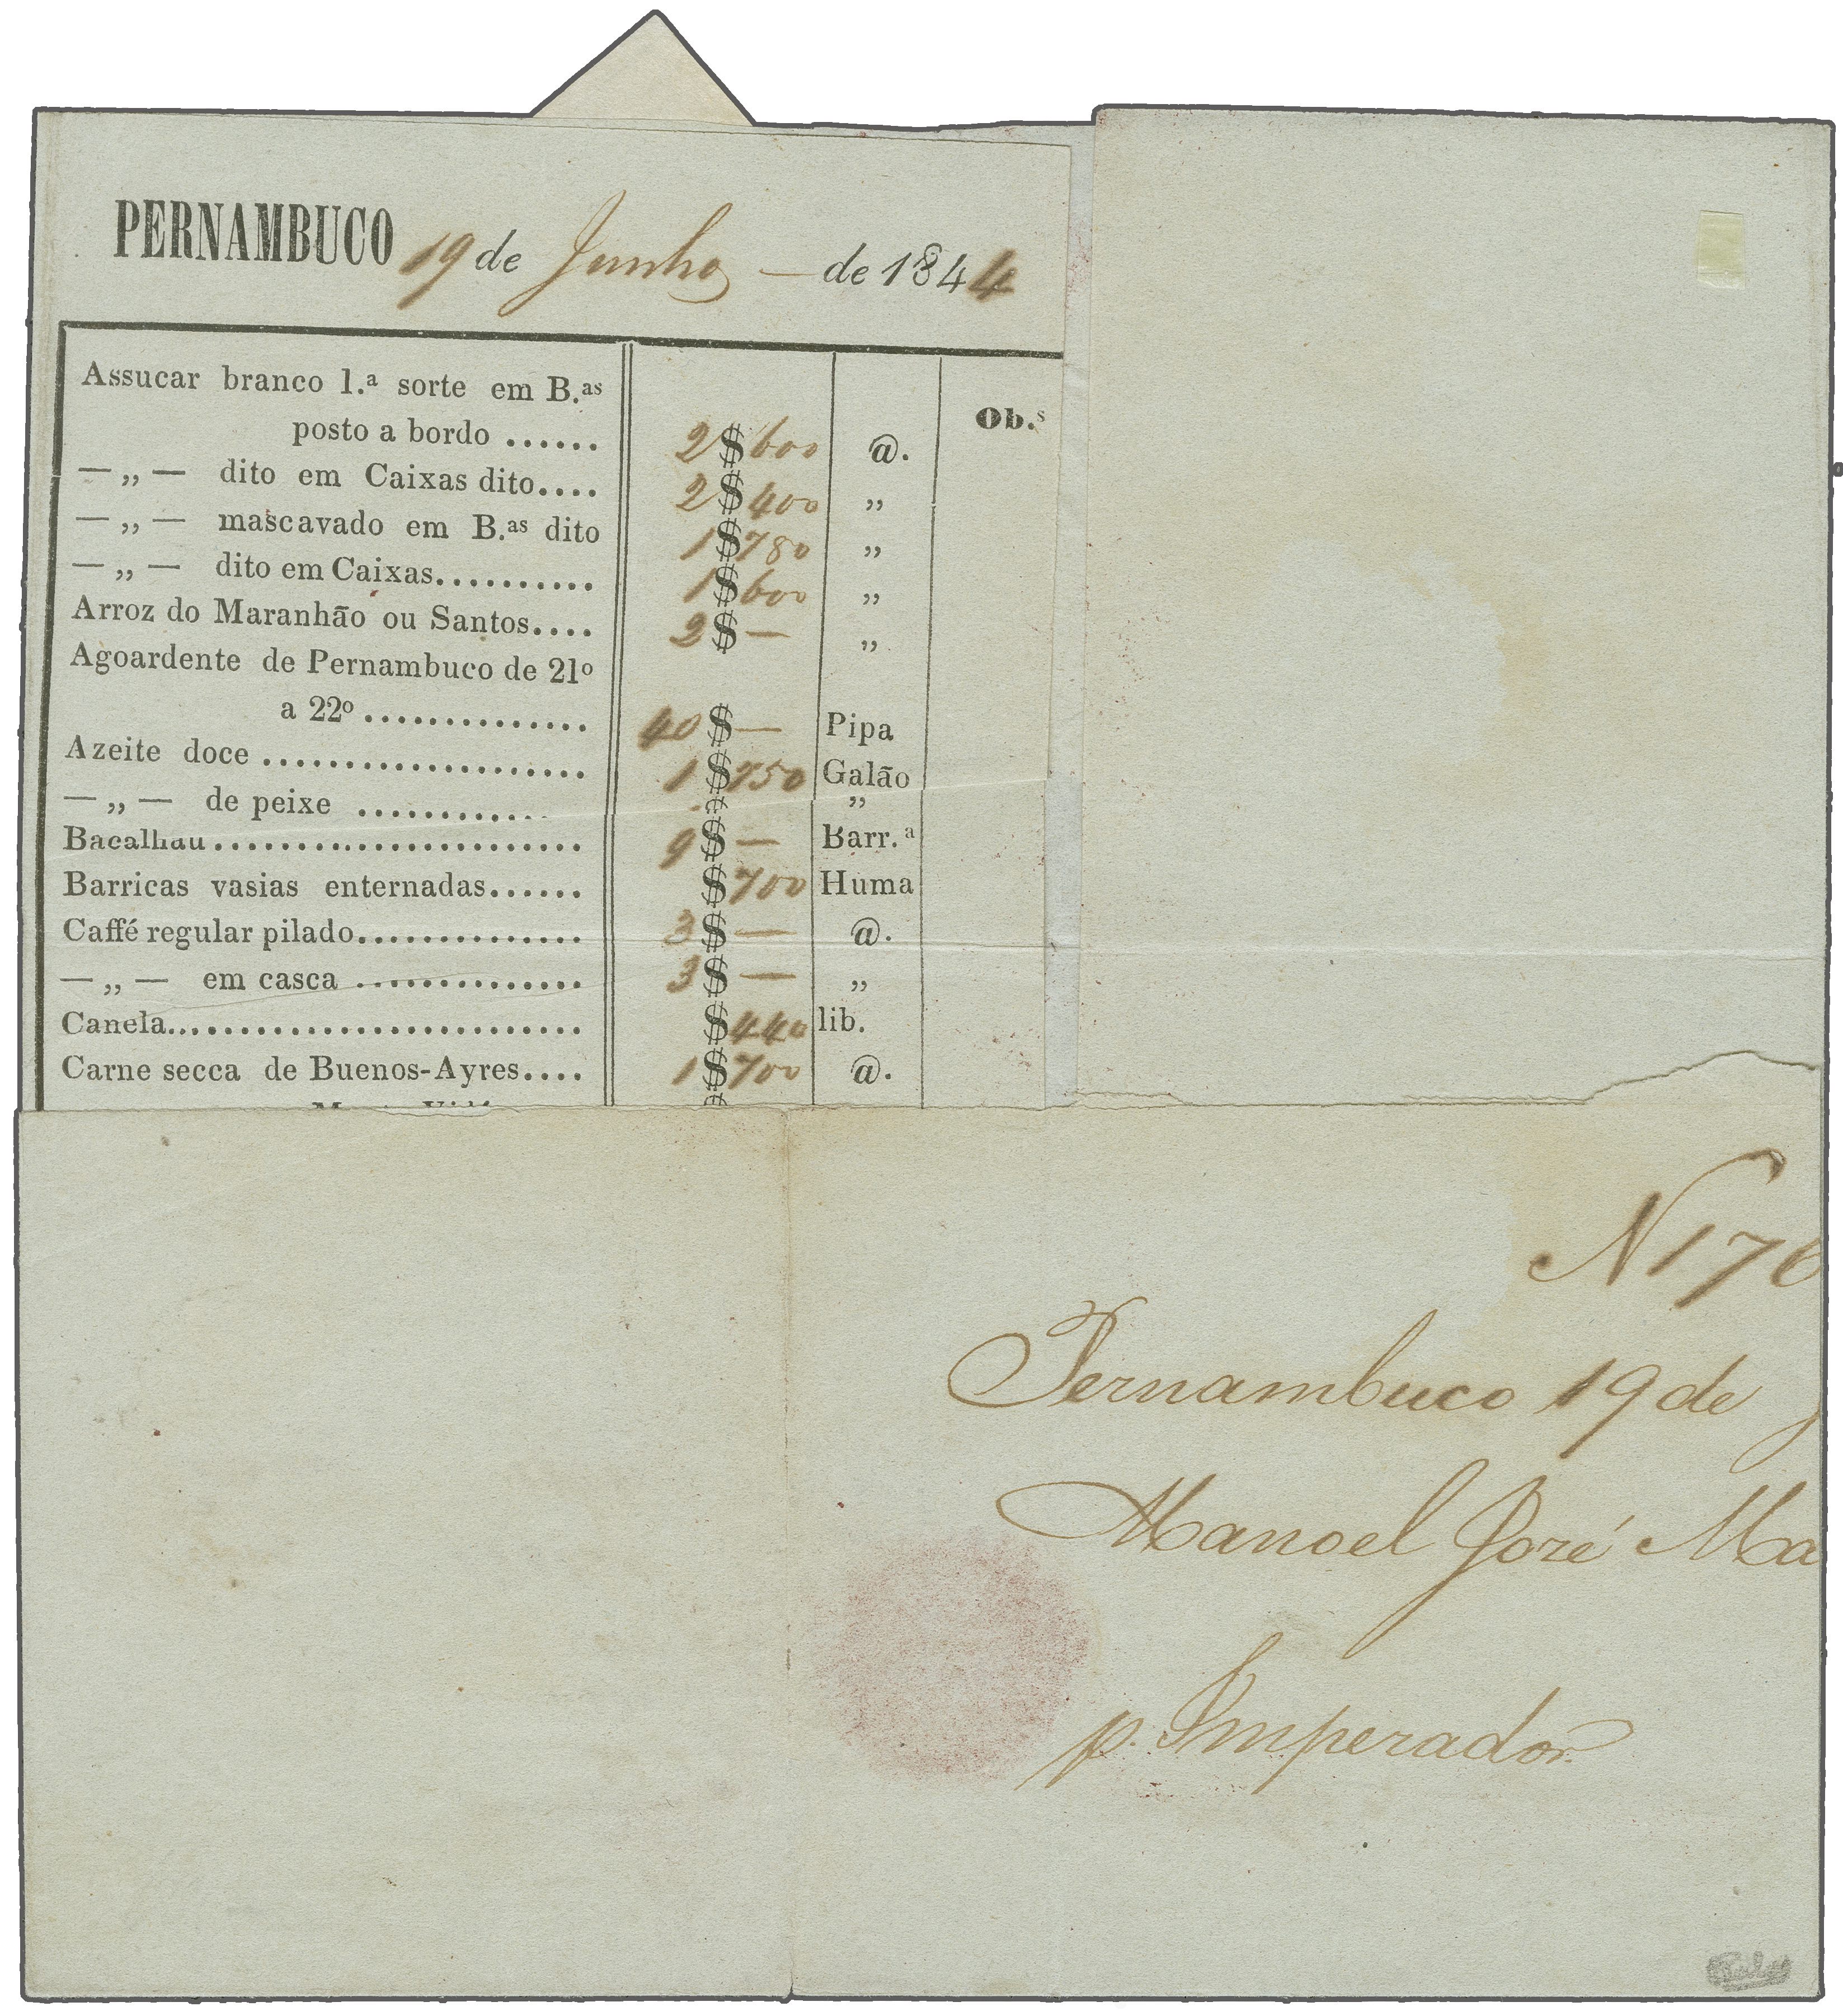 PERNAMBUCO 19 de Junho — de 1844
Ob.s
Assucar branco 1.a sorte em B.as
posto a bordo ...... 2$600 @.
— „ — dito em Caixas dito.... 2$400 „
— „ — mascavado em B.as dito 1$780 „
— „ — dito em Caixas.......... 1$600 „
Arroz do Maranhão ou Santos.... 2$— „
Agoardente de Pernambuco de 21o
a 22o .............. 40$— Pipa
Azeite doce ..................... 1$750 Galão
— „ — de peixe ............. $ „
Bacalhau........................ 9$— Barr.a
Barricas vasias enternadas...... $700 Huma
Caffé regular pilado.............. 3$— @.
— „ — em casca .............. 3$— „
Canela........................... $440 lib.
Carne secca de Buenos-Ayres.... 1$700 @.
N 176
Pernambuco 19 de J
Manoel José Ma
p. Imperador